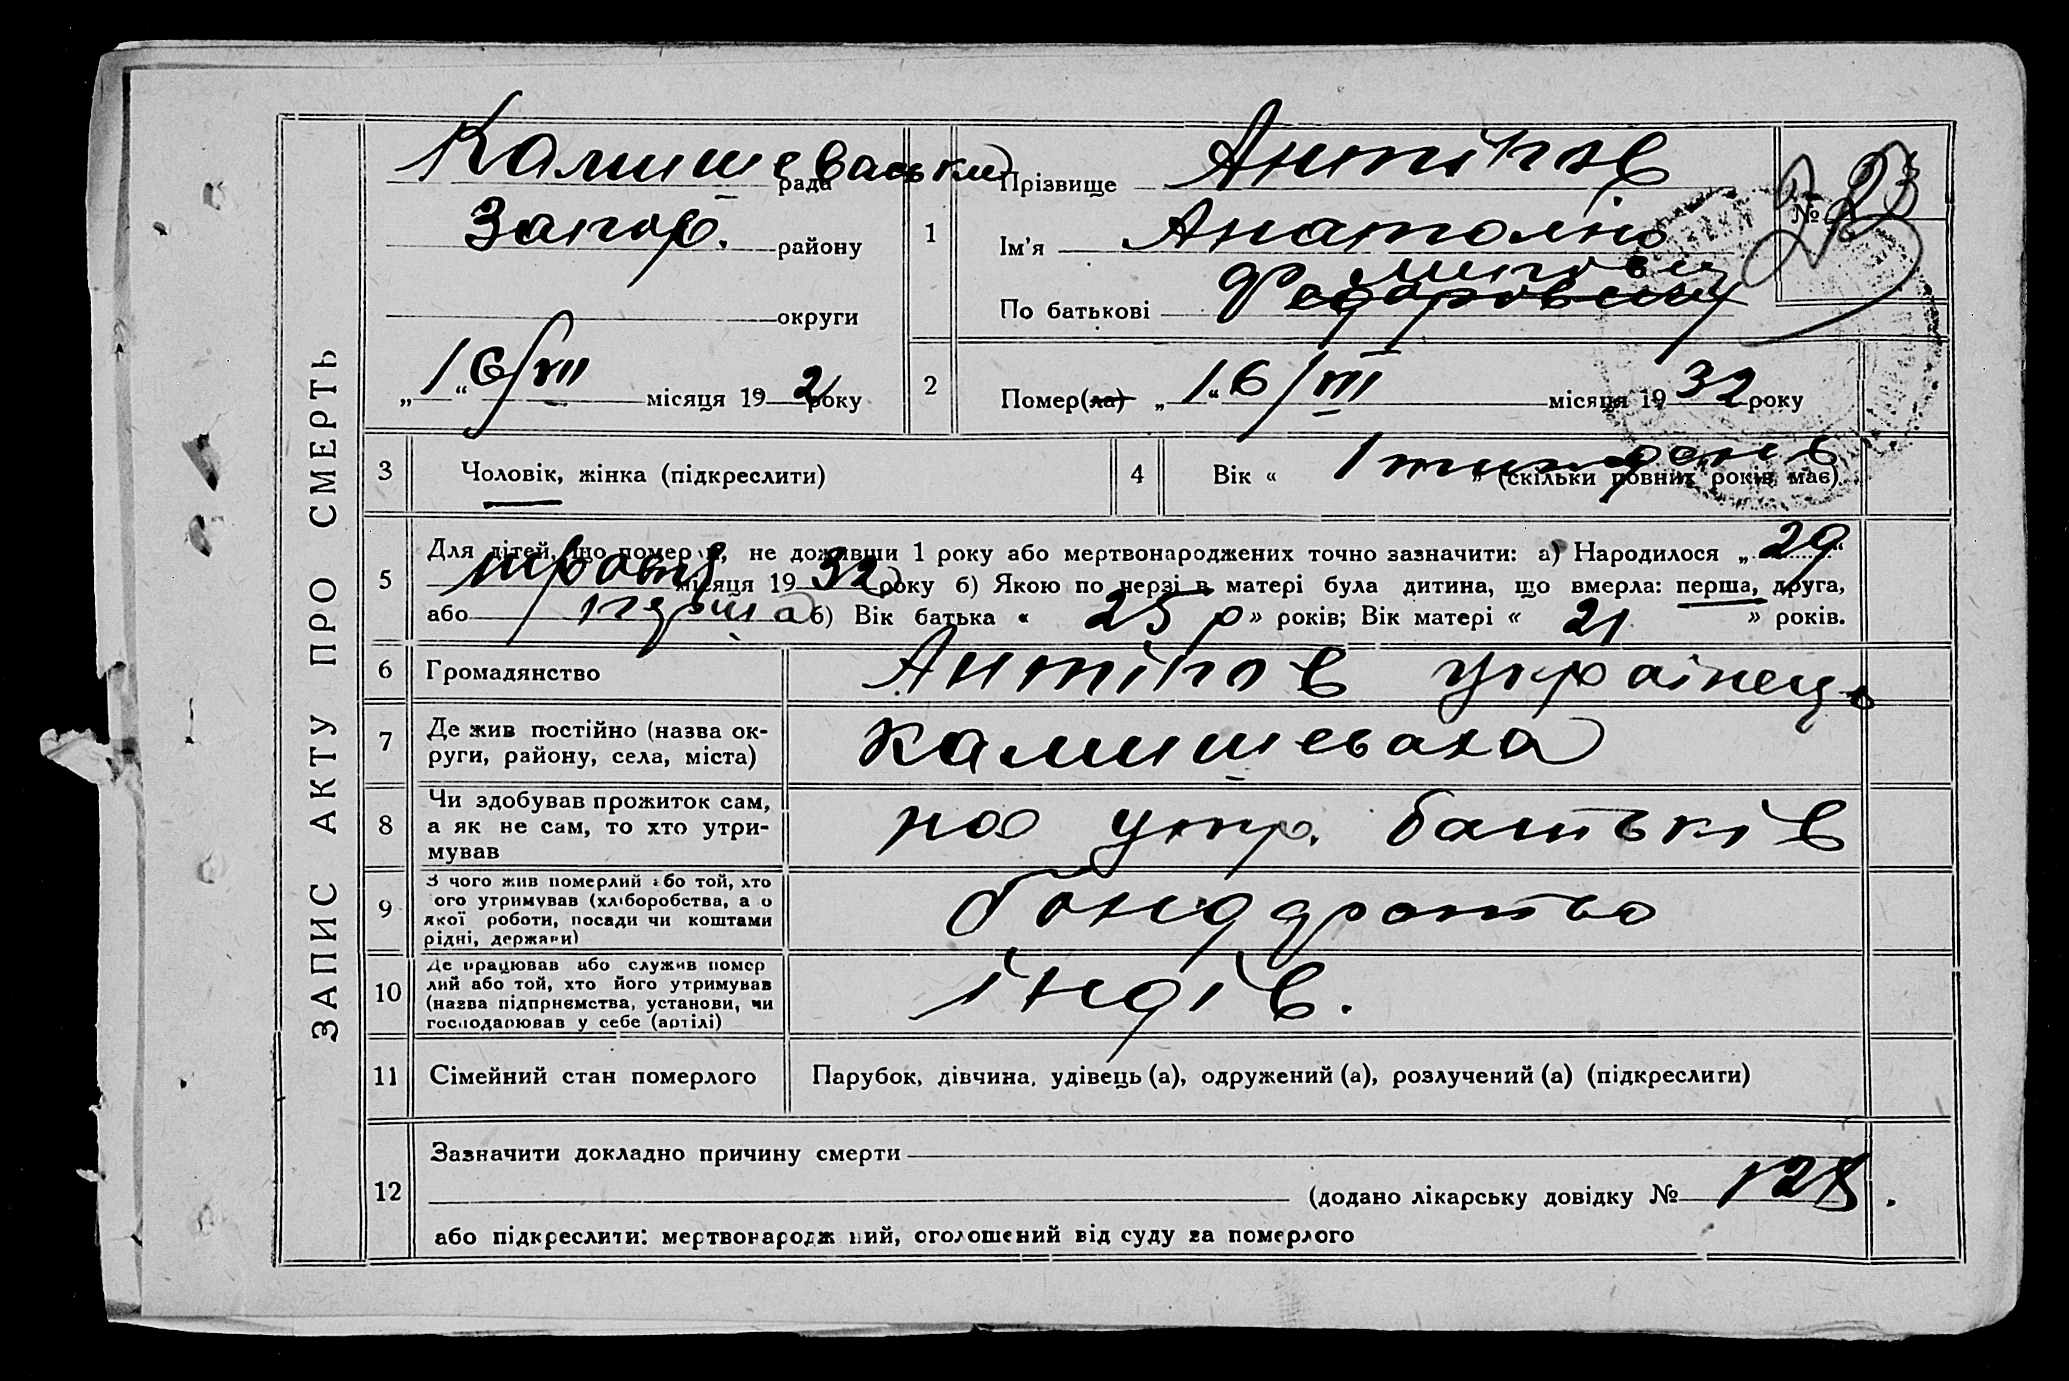 ЗАПИС АКТУ ПРО СМЕРТЬ
Камишеваськи рада
Запор. району
округи
„16“/VII місяця 192 року
1
Прізвище Антіпов
Ім'я Анатолію
По батькові Федоровичу
№ 23
2
Помер(ла) „16“/VII місяця 1932 року
3 Чоловік, жінка (підкреслити)
4 Вік « 1 » (скільки повних років має).
5 Для дітей, що померли, не доживши 1 року або мертвонароджених точно зазначити: а) Народилося „29“
місяця 1932 року б) Якою по черзі в матері була дитина, що вмерла: перша, друга,
або перша в) Вік батька « 25 р» років; Вік матері « 21 » років.
6 Громадянство Антіпов українець.
7 Де жив постійно (назва округи, району, села, міста) Камишеваха
8 Чи здобував прожиток сам, а як не сам, то хто утримував на утр. батьків
9 З чого жив померлий або той, хто його утримував (хліборобства, а о якої роботи, посади чи коштами рідні, держави)
10 Де працював або служив померлий або той, хто його утримував (назва підприємства, установи, чи господарював у себе (артілі) індів.
11 Сімейний стан померлого Парубок, дівчина, удівець (а), одружений (а), розлучений (а) (підкреслити)
12 Зазначити докладно причину смерти
(додано лікарську довідку № 128.
або підкреслити: мертвонароджений, оголошений від суду за померлого